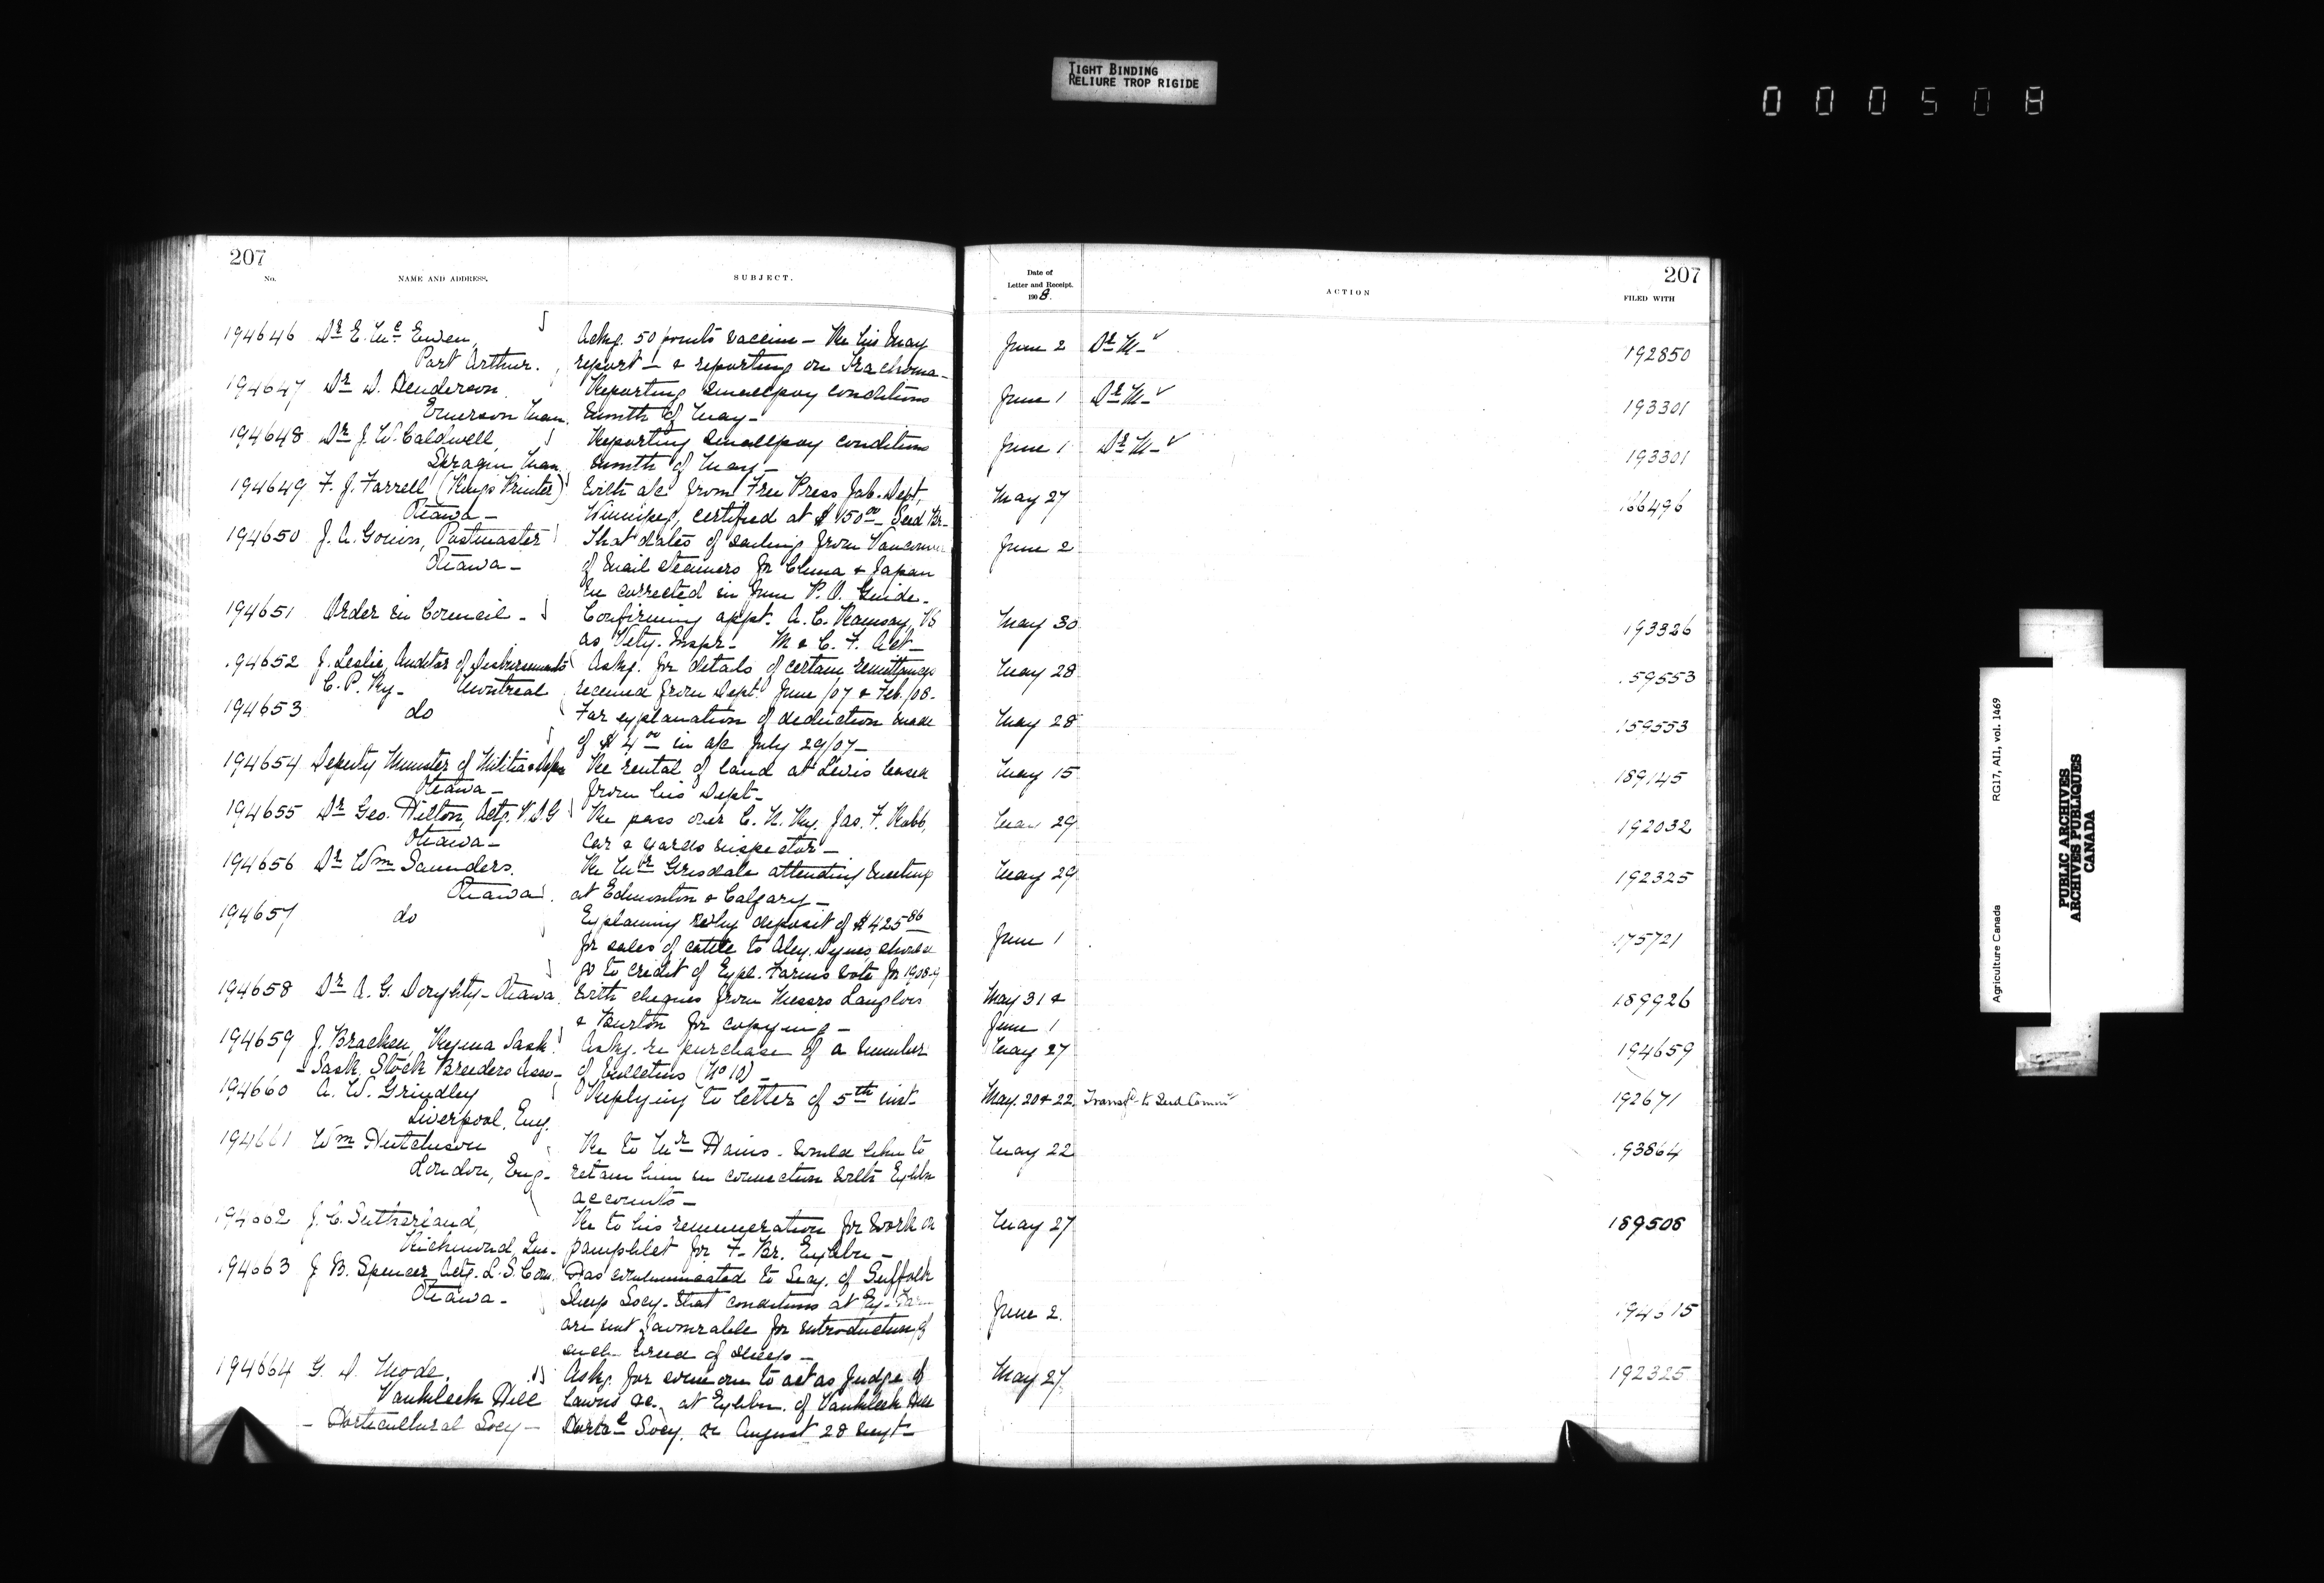 TIGHT BINDING
RELIURE TROP RIGIDE
000508
207
No.
NAME AND ADDRESS.
SUBJECT.
194646 Dr E. McEwen,
Port Arthur.
Askg. 50 points vaccine - Re his May
report - & reporting on Trachoma -
194647 Dr D. Henderson
Emerson Man.
Reporting smallpox conditions
month of May -
194648 Dr J. W. Caldwell,
Man.
Reporting smallpox conditions
month of May -
194649 F. J. Farrell (Kings Printer)
Ottawa -
With a/c from Free Press Job. Dept,
Winnipeg, certified at $150.00 - Seed Br -
194650 J. A. Gouin, Postmaster
Ottawa -
That dates of sailing from Vancouver
of mail steamers for China & Japan
be corrected in June P. O. Guide -
194651 Order in Council -
Confirming appt. A. C. Ramsay, VS
as Vety. Inspr - M & C. F. Act -
94652 J. Leslie, Auditor of Disbursements
C. P. Ry - Montreal
Askg. for details of certain remittances
received from Dept. June/07 & Feb/08 -
194653 do
For explanation of deduction made
of $4.00 in a/c July 29/07 -
194654 Deputy Minister of Militia &
Ottawa -
Re rental of land at Levis leased
from his Dept -
194655 Dr Geo. Hilton, Actg. V.D.G
Ottawa -
Re pass over C. N. Ry. Jas. F. Rabb,
car & yards inspector -
194656 Dr Wm Saunders.
Ottawa.
Re Mr Grisdale attending meeting
at Edmonton & Calgary -
194657 do
Explaining why deposit of $425.86
for sales of cattle to Alex. Dynes should
go to credit of Expl. Farms vote for 1908-9
194658 Dr A. G. Doughty - Ottawa
With cheques from Messrs Langlois
& Burton for copying -
194659 J. Bracken, Regina Sask.
- Sask. Stock Breeders Assn -
Askg. re purchase of a number
of bulletins (No 10) -
194660 A. W. Grindley
Liverpool, Eng.
Replying to letter of 5th inst -
194661 Wm Hutchison
London, Eng -
Re to Mr Hains - would like to
retain him in connection with Exhbn
accounts -
194662 J. C. Sutherland,
Richmond, Que -
Re to his remuneration for work on
pamphlet for F - Br. Exhbn -
94663 J. B. Spencer Actg. L. S. Com.
Ottawa -
Has communicated to Secy. of Suffolk
Sheep Socy - that conditions at Ex - Farm
are not favourable for introduction of
such breed of sheep -
194664 G. D. Mode,
Vankleek Hill
- Horticultural Socy -
Askg. for some one to act as Judge of
lawns &c., at Exhbn. of Vankleek Hill
Hortcl Socy. on August 28 next -
Date of
Letter and Receipt.
1908.
ACTION
207
FILED WITH
June 2 Dr M - ✓ 192850
June 1 Dr M - ✓ 193301
June 1 Dr M - ✓ 193301
May 27 166496
June 2
May 30 193326
May 28 59553
May 28 159553
May 15 189145
May 29 192032
May 29 192325
June 1 175721
May 31 &
June 1 189926
May 27 194659
May. 20 & 22. Transfd to Seed Commr 192671
May 22 93864
May 27 189508
June 2.
May 27 192325
Agriculture Canada
RG17, AI1, vol. 1469
PUBLIC ARCHIVES
ARCHIVES PUBLIQUES
CANADA